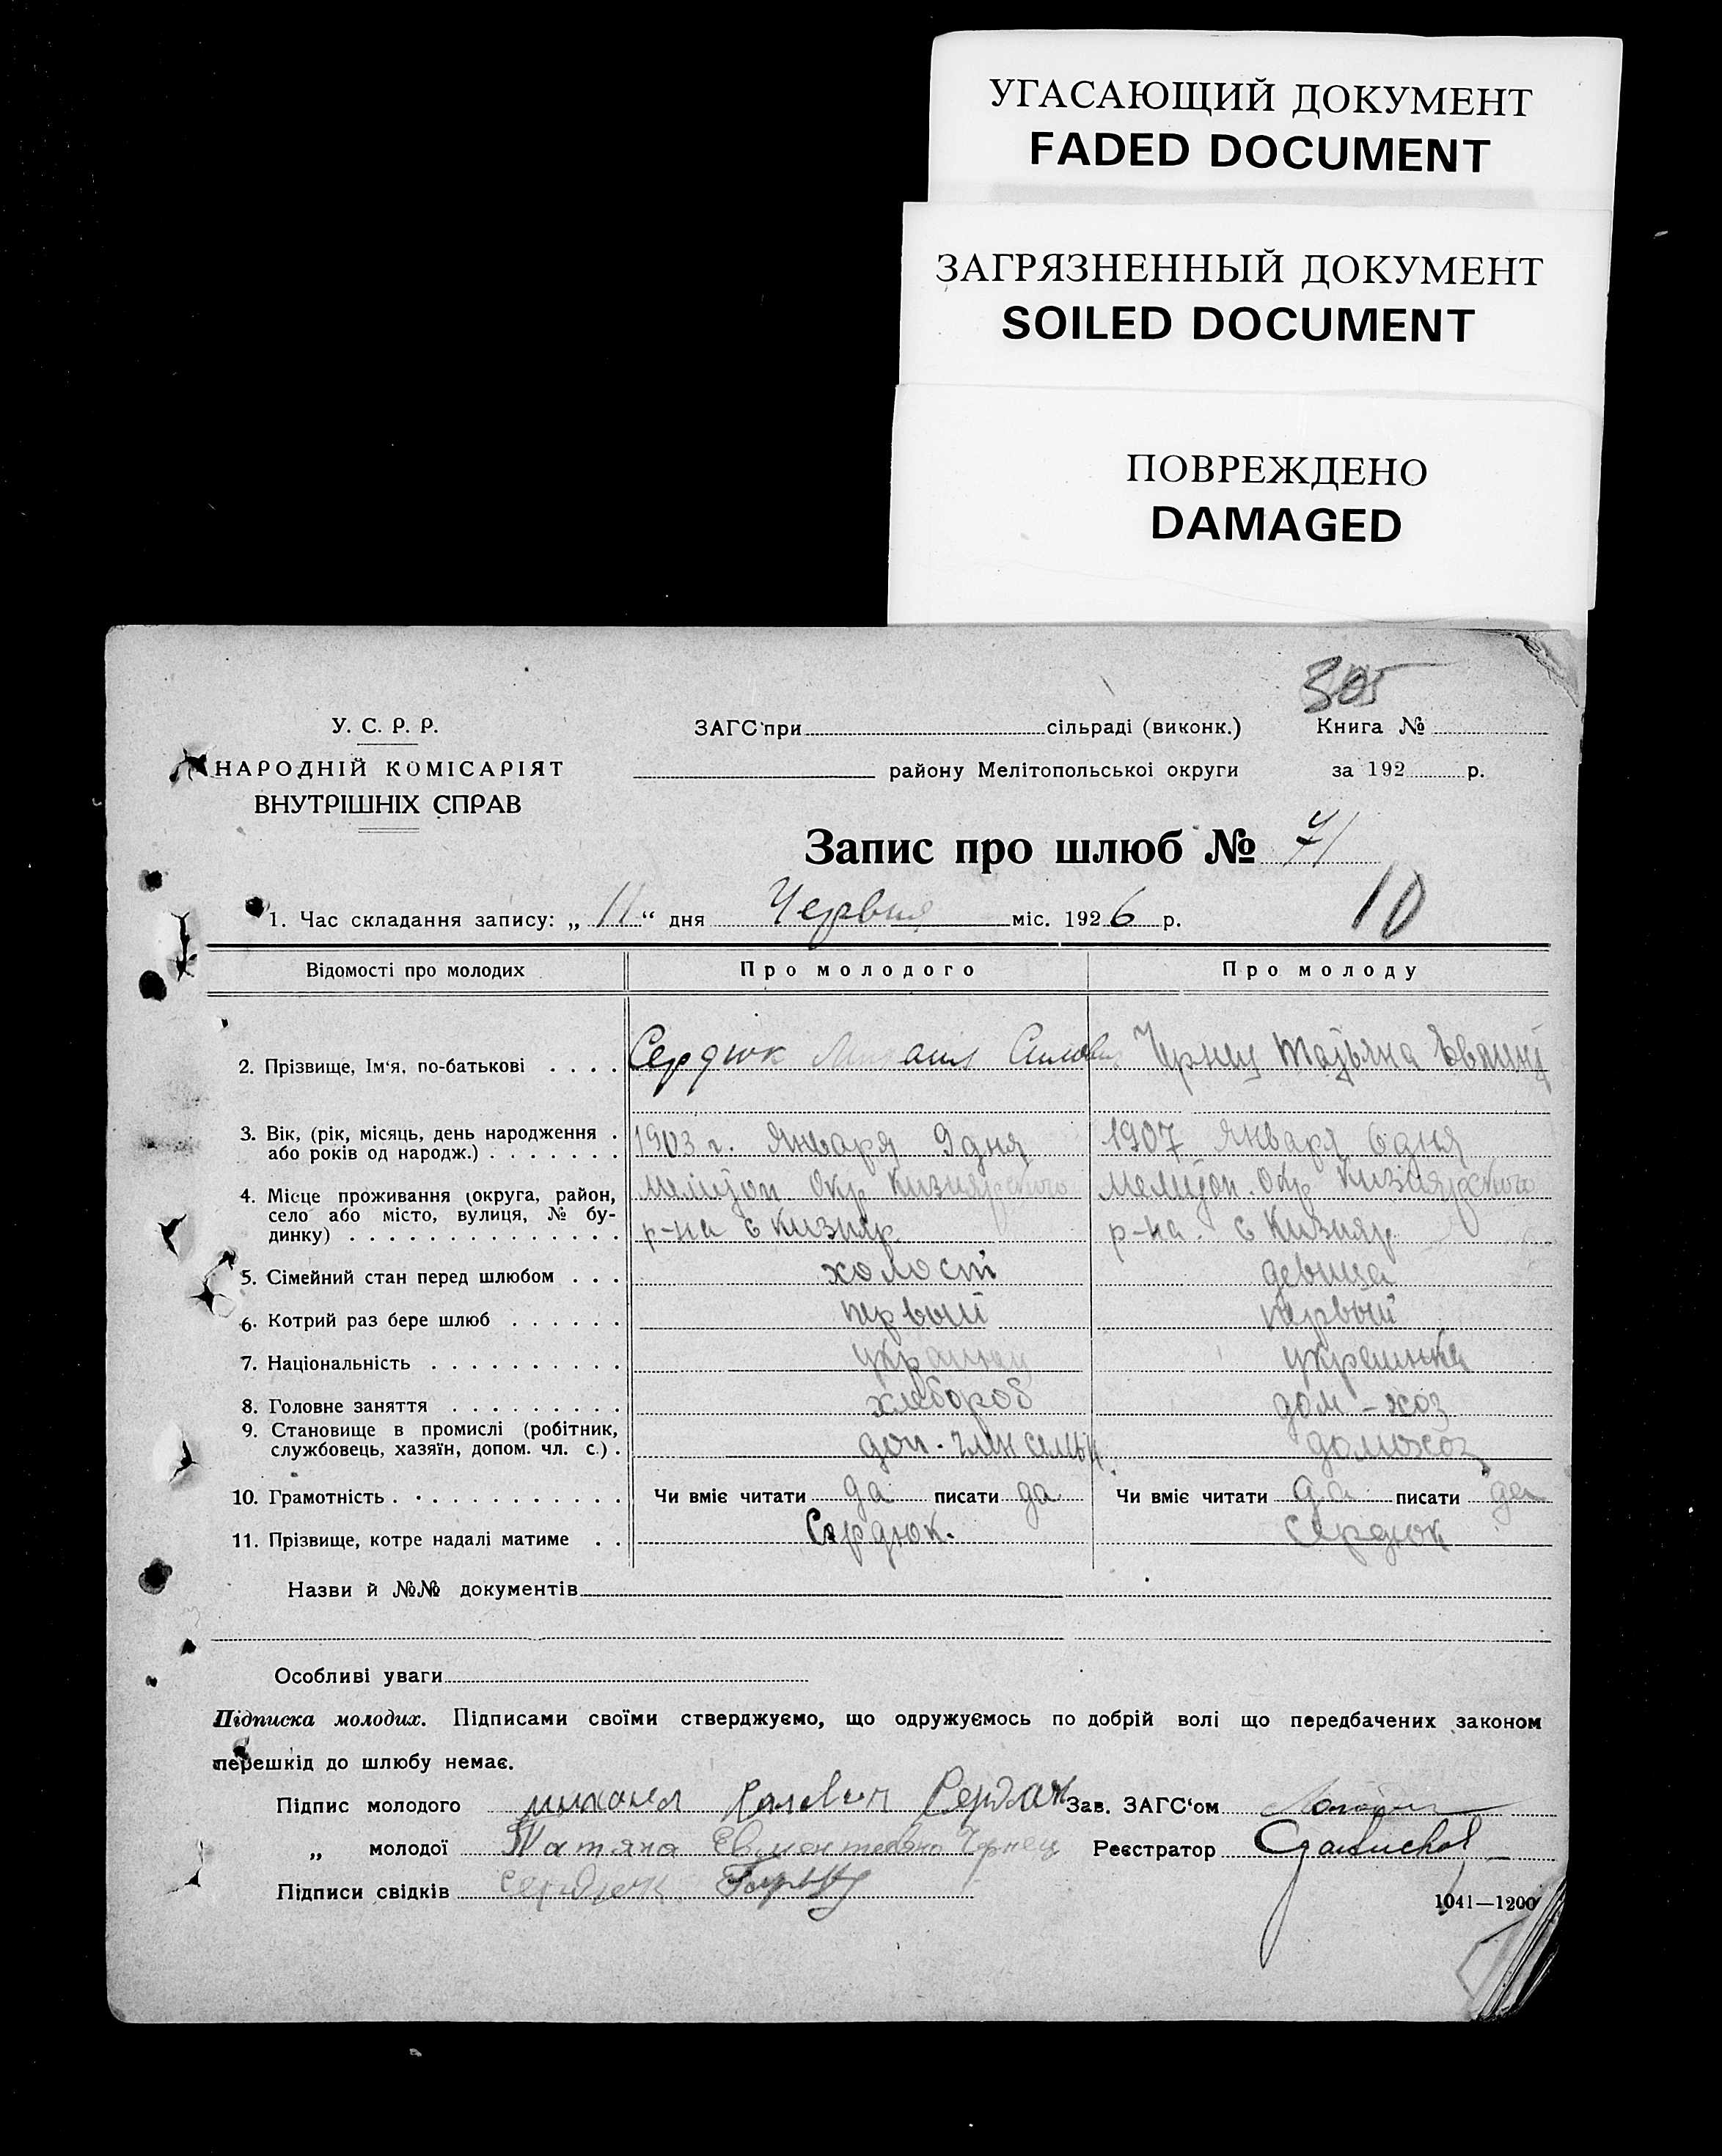 УГАСАЮЩИЙ ДОКУМЕНТ
FADED DOCUMENT
ЗАГРЯЗНЕННЫЙ ДОКУМЕНТ
SOILED DOCUMENT
ПОВРЕЖДЕНО
DAMAGED
305
У. С. Р. Р.
НАРОДНІЙ КОМІСАРІЯТ
ВНУТРІШНІХ СПРАВ
ЗАГС при сільраді (виконк.)
району Мелітопольської округи
Книга №
за 192 р.
Запис про шлюб №
10
1. Час складання запису: „ 11 “ дня Червня міс. 1926 р.
Відомості про молодих Про молодого Про молоду
2. Прізвище, Ім'я, по-батькові Сердюк Михаил Чернец Татьяна
3. Вік, (рік, місяць, день народження 1903 г. Января 9 дня 1907 Января 6 дня
або років од народж.)
4. Місце проживання (округа, район, Мелитоп. Окр Кизиярского Мелитоп. Окр Кизиярского
село або місто, вулиця, № бу-
динку) р-на с Кизияр р-на. с Кизияр
5. Сімейний стан перед шлюбом холост девица
6. Котрий раз бере шлюб первый первый
7. Національність украинец украинка
8. Головне заняття хлебороб дом-хоз
9. Становище в промислі (робітник,
службовець, хазяїн, допом. чл. с.) доп. член семьи домохоз
10. Грамотність Чи вміє читати да писати да Чи вміє читати да писати да
11. Прізвище, котре надалі матиме Сердюк. Сердюк
Назви й №№ документів
Особливі уваги
Підписка молодих. Підписами своїми стверджуємо, що одружуємось по добрій волі що передбачених законом
перешкід до шлюбу немає.
Підпис молодого Михаил Сердюк Зав. ЗАГС'ом
„ молодої Татяна Чернец Реєстратор
Підписи свідків Сердюк
1041—1200